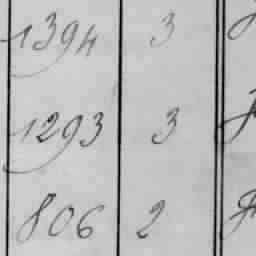 1394 3
1293 3
806 2